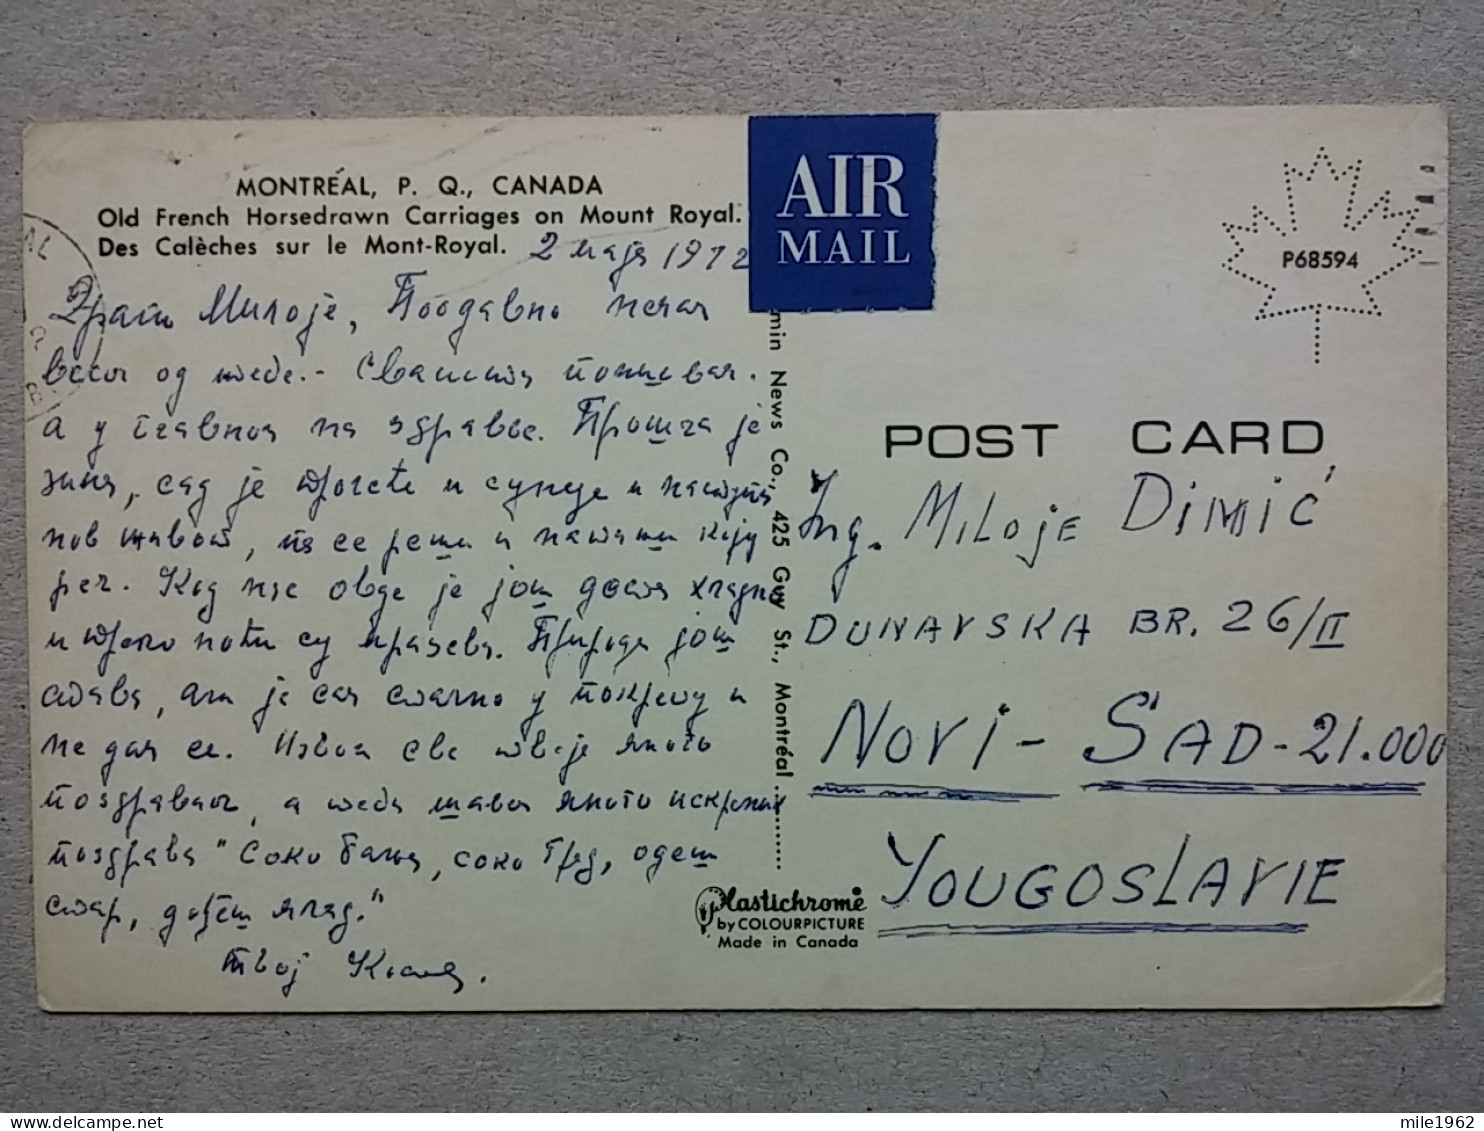 MONTRÉAL, P. Q., CANADA
Old French Horsedrawn Carriages on Mount Royal.
Des Calèches sur le Mont-Royal.
2 маја 1972
Драги Милоје, Поодавно немам
вести од тебе.- Свашта
а у главном на здравље. Прошла је
зима, сад је пролеће и сунце и
нов живот, па се реших и
реч. Код нас овде је још доста хладно
и преко ноћи су мразеви. Природа још
спава, али је сам стално у покрету и
не дам се. Извол све твоје много
поздравио, а теби шаљем много искрених
поздрава "Соко бања, соко град, одеш
стар, дођеш млад."
Твој
AIR
MAIL
P68594
POST CARD
Ing. MILOJE DIMIĆ
DUNAVSKA BR. 26/II
NOVI - SAD - 21.000
YOUGOSLAVIE
min News Co., 425 Guy St., Montréal
Plastichrome
by COLOURPICTURE
Made in Canada
mile1962